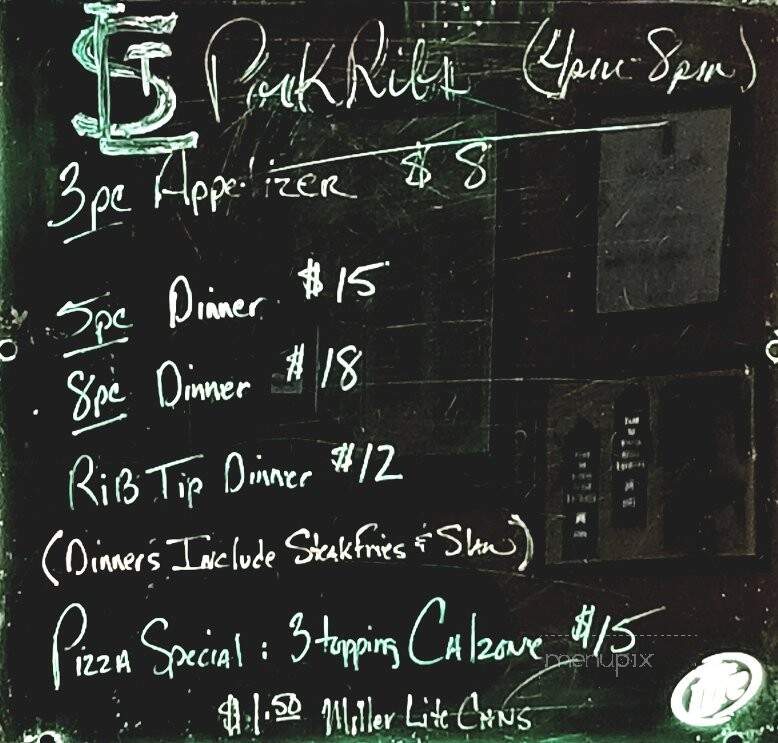 STL Pork Ribs (4pm-8pm)
3pc Appetizer $8
5pc Dinner $15
8pc Dinner $18
Rib Tip Dinner $12
(Dinners Include Steak Fries & Slaw)
Pizza Special: 3 topping Calzone $15
menupix
$1.50 Miller Lite Cans
Lite